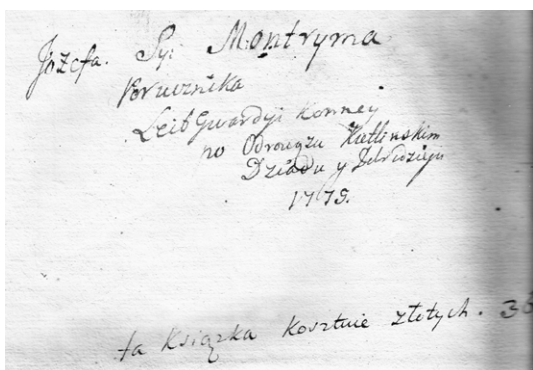 Józefa. Sy: Montryma
Porucznika
Leib Gwardyi Konney
po Odrowążu Kutlinskim
Dziadu y
1779.
ta Ksiązka kosztuie złotych. 36